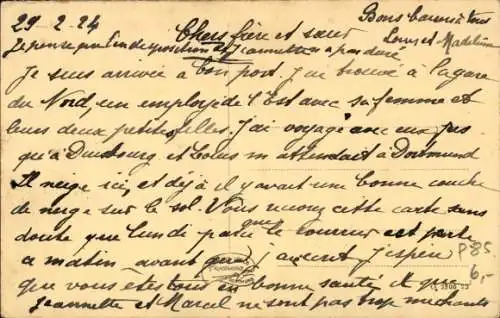 29-2-24
Chers frère et sœur
Bons baisers à tous
Louis et Madeleine
Je pense que l'indisposition de Jeannette n'a pas duré
Je suis arrivée à bon port, j'ai trouvé à la gare
du Nord, un employé de l'Est avec sa femme et
leurs deux petites filles. J'ai voyagé avec eux jus
qu'à Duisbourg et Louis m'attendait à Dortmund
Il neige ici, et déjà il y avait une bonne couche
de neige sur le sol. Vous recevrez cette carte sans
doute que lundi parce que le courrier est parti
ce matin, avant que j'écrive j'espère
que vous êtes tous en bonne santé et que
Jeannette et Marcel ne sont pas trop méchants
P 85
6,-